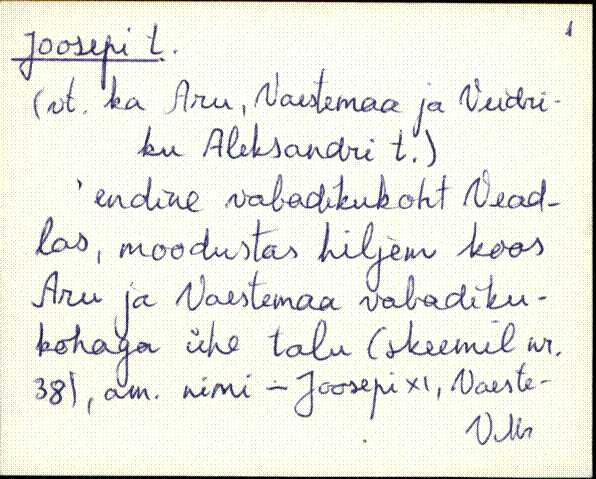 Joosepi t. 1
(vt. ka Aru, Vaestemaa ja Veidri-
ku Aleksandri t.)
'endine vabadikukoht Vead-
las, moodustas hiljem koos
Aru ja Vaestemaa vabadiku-
kohaga ühe talu (skeemil nr.
38), am. nimi – Joosepi x1, Vaeste-
VMr